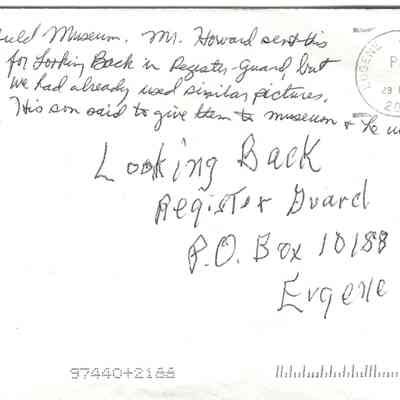 Museum. Mr. Howard sent this
for Looking Back in Register-Guard, but
we had already used similar pictures.
His son said to give them to museum &
EUGENE
P
20
Looking Back
Register Guard
P.O. Box 10188
Eugene
97440+2188